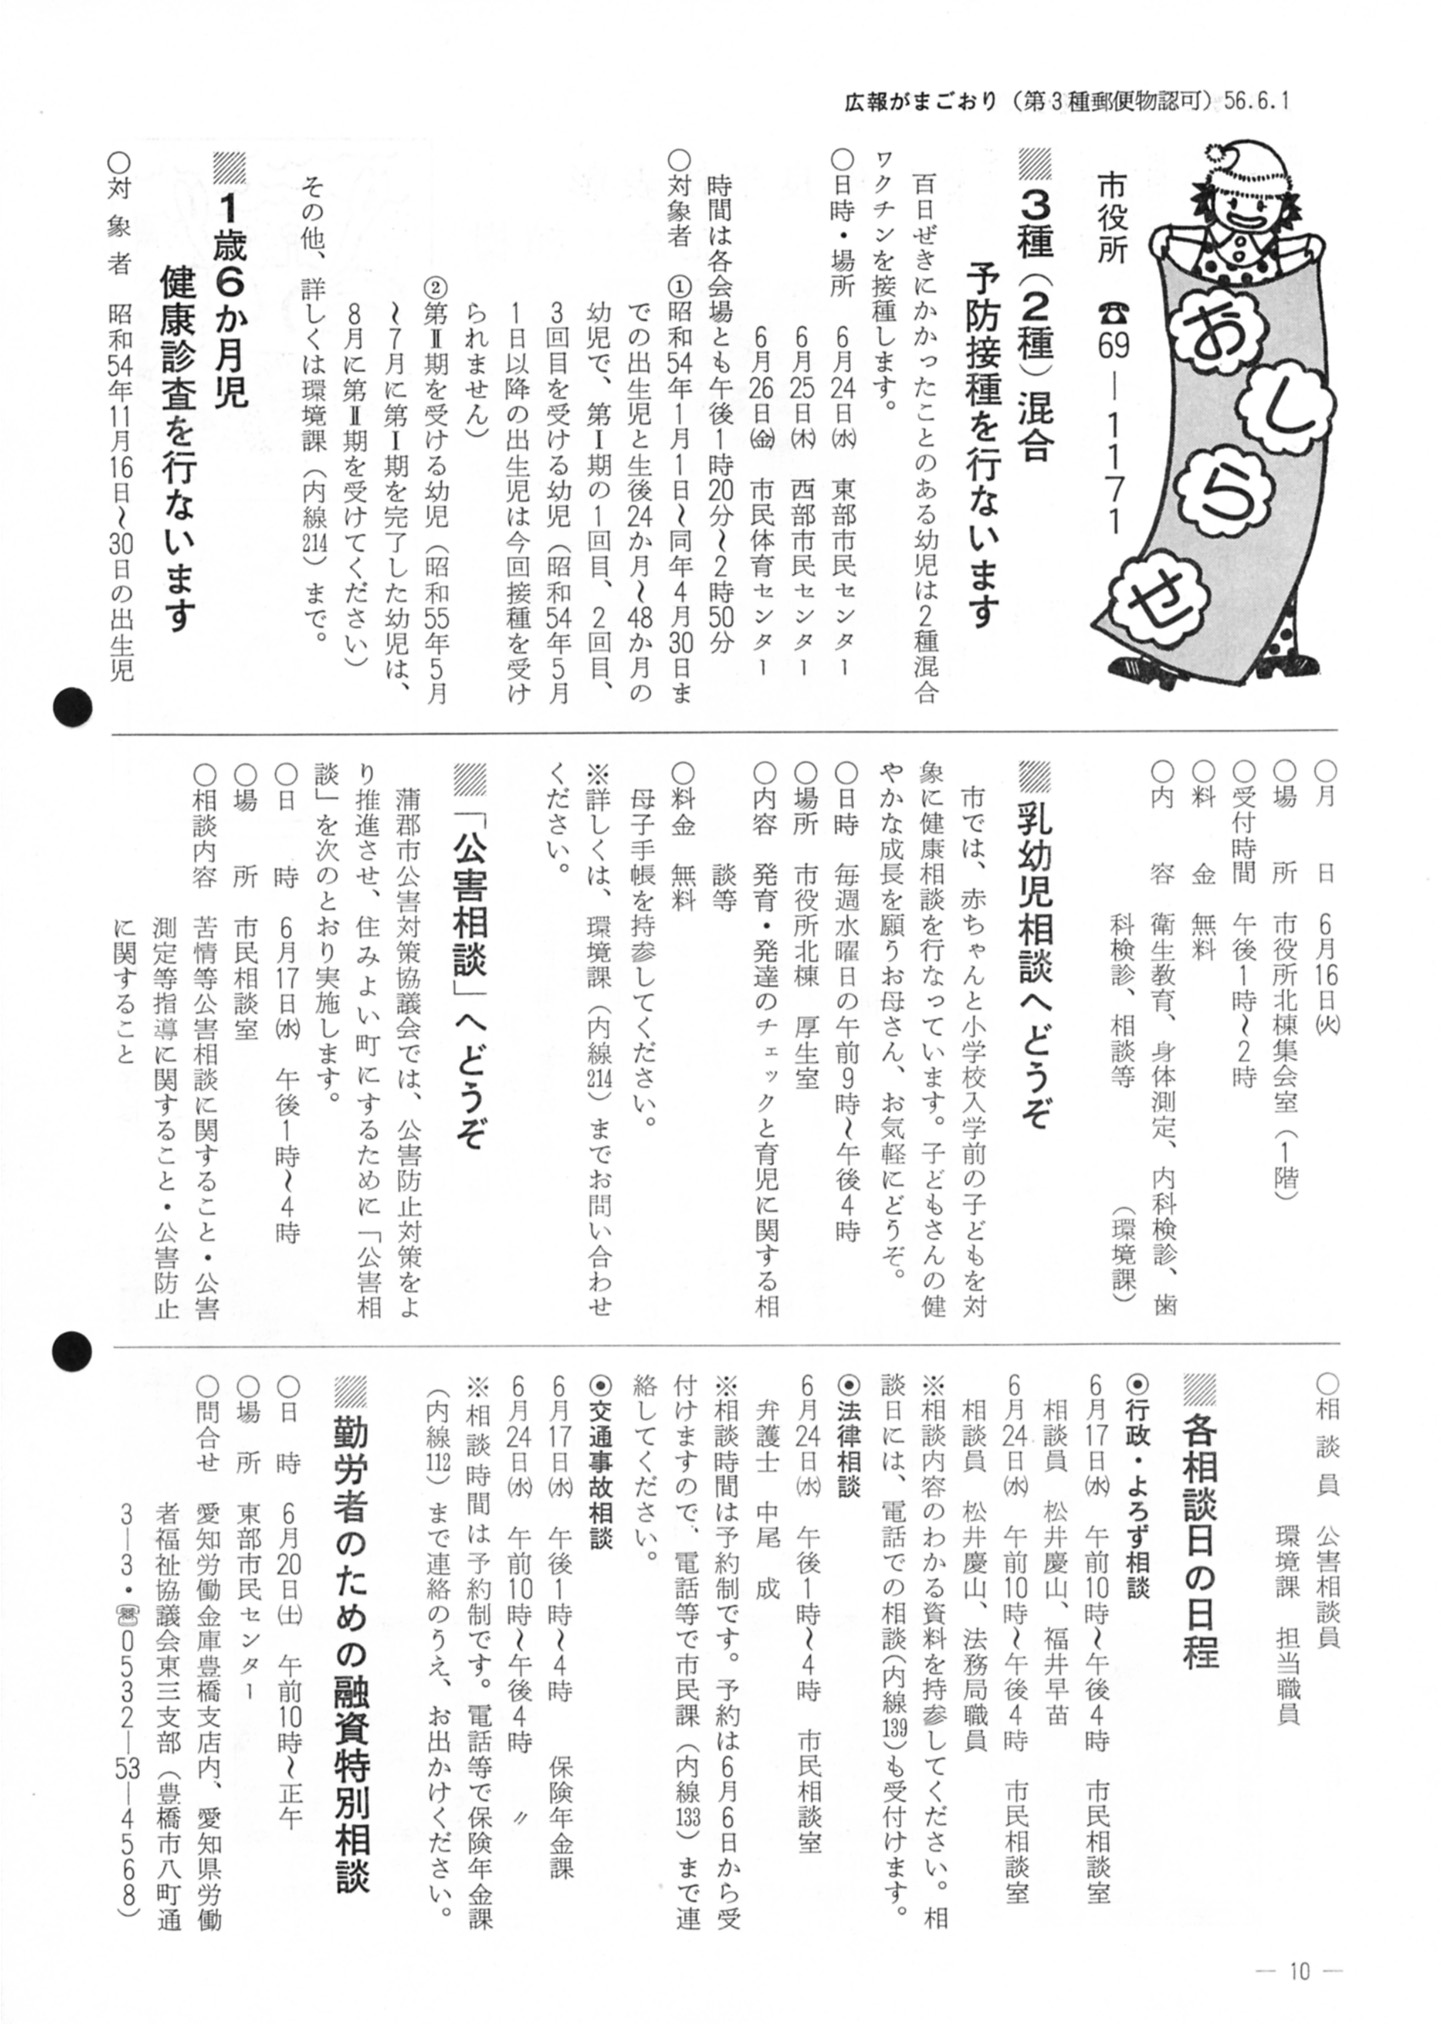 広報がまごおり（第3種郵便物認可）56.6.1
おしらせ
市役所　☎69―1171
3種（2種）混合
予防接種を行ないます
百日ぜきにかかったことのある幼児は2種混合
ワクチンを接種します。
○日時・場所　6月24日㈬　東部市民センター
6月25日㈭　西部市民センター
6月26日㈮　市民体育センター
時間は各会場とも午後1時20分〜2時50分
○対象者　①昭和54年1月1日〜同年4月30日ま
での出生児と生後24か月〜48か月の
幼児で、第Ⅰ期の1回目、2回目、
3回目を受ける幼児（昭和54年5月
1日以降の出生児は今回接種を受け
られません）
②第Ⅱ期を受ける幼児（昭和55年5月
〜7月に第Ⅰ期を完了した幼児は、
8月に第Ⅱ期を受けてください）
その他、詳しくは環境課（内線214）まで。
1歳6か月児
健康診査を行ないます
○対象者　昭和54年11月16日〜30日の出生児
○月　日　6月16日㈫
○場　所　市役所北棟集会室（1階）
○受付時間　午後1時〜2時
○料　金　無料
○内　容　衛生教育、身体測定、内科検診、歯
科検診、相談等　（環境課）
乳幼児相談へどうぞ
市では、赤ちゃんと小学校入学前の子どもを対
象に健康相談を行なっています。子どもさんの健
やかな成長を願うお母さん、お気軽にどうぞ。
○日時　毎週水曜日の午前9時〜午後4時
○場所　市役所北棟　厚生室
○内容　発育・発達のチェックと育児に関する相
談等
○料金　無料
母子手帳を持参してください。
※詳しくは、環境課（内線214）までお問い合わせ
ください。
「公害相談」へどうぞ
蒲郡市公害対策協議会では、公害防止対策をよ
り推進させ、住みよい町にするために「公害相
談」を次のとおり実施します。
○日　時　6月17日㈬　午後1時〜4時
○場　所　市民相談室
○相談内容　苦情等公害相談に関すること・公害
測定等指導に関すること・公害防止
に関すること
○相談員　公害相談員
環境課　担当職員
各相談日の日程
◉行政・よろず相談
6月17日㈬　午前10時〜午後4時　市民相談室
相談員　松井慶山、福井早苗
6月24日㈬　午前10時〜午後4時　市民相談室
相談員　松井慶山、法務局職員
※相談内容のわかる資料を持参してください。相
談日には、電話での相談（内線139）も受付けます。
◉法律相談
6月24日㈬　午後1時〜4時　市民相談室
弁護士　中尾　成
※相談時間は予約制です。予約は6月6日から受
付けますので、電話等で市民課（内線133）まで連
絡してください。
◉交通事故相談
6月17日㈬　午後1時〜4時　保険年金課
6月24日㈬　午前10時〜午後4時　〃
※相談時間は予約制です。電話等で保険年金課
（内線112）まで連絡のうえ、お出かけください。
勤労者のための融資特別相談
○日　時　6月20日㈯　午前10時〜正午
○場　所　東部市民センター
○問合せ　愛知労働金庫豊橋支店内、愛知県労働
者福祉協議会東三支部（豊橋市八町通
3―3・☎0532―53―4568）
― 10 ―